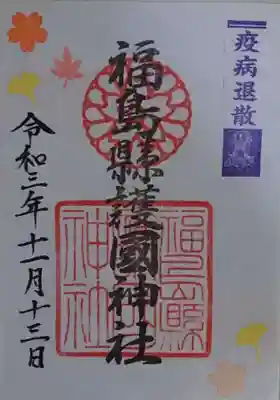 疫病退散
福島縣護國神社
福島縣
神社
令和三年十一月十三日